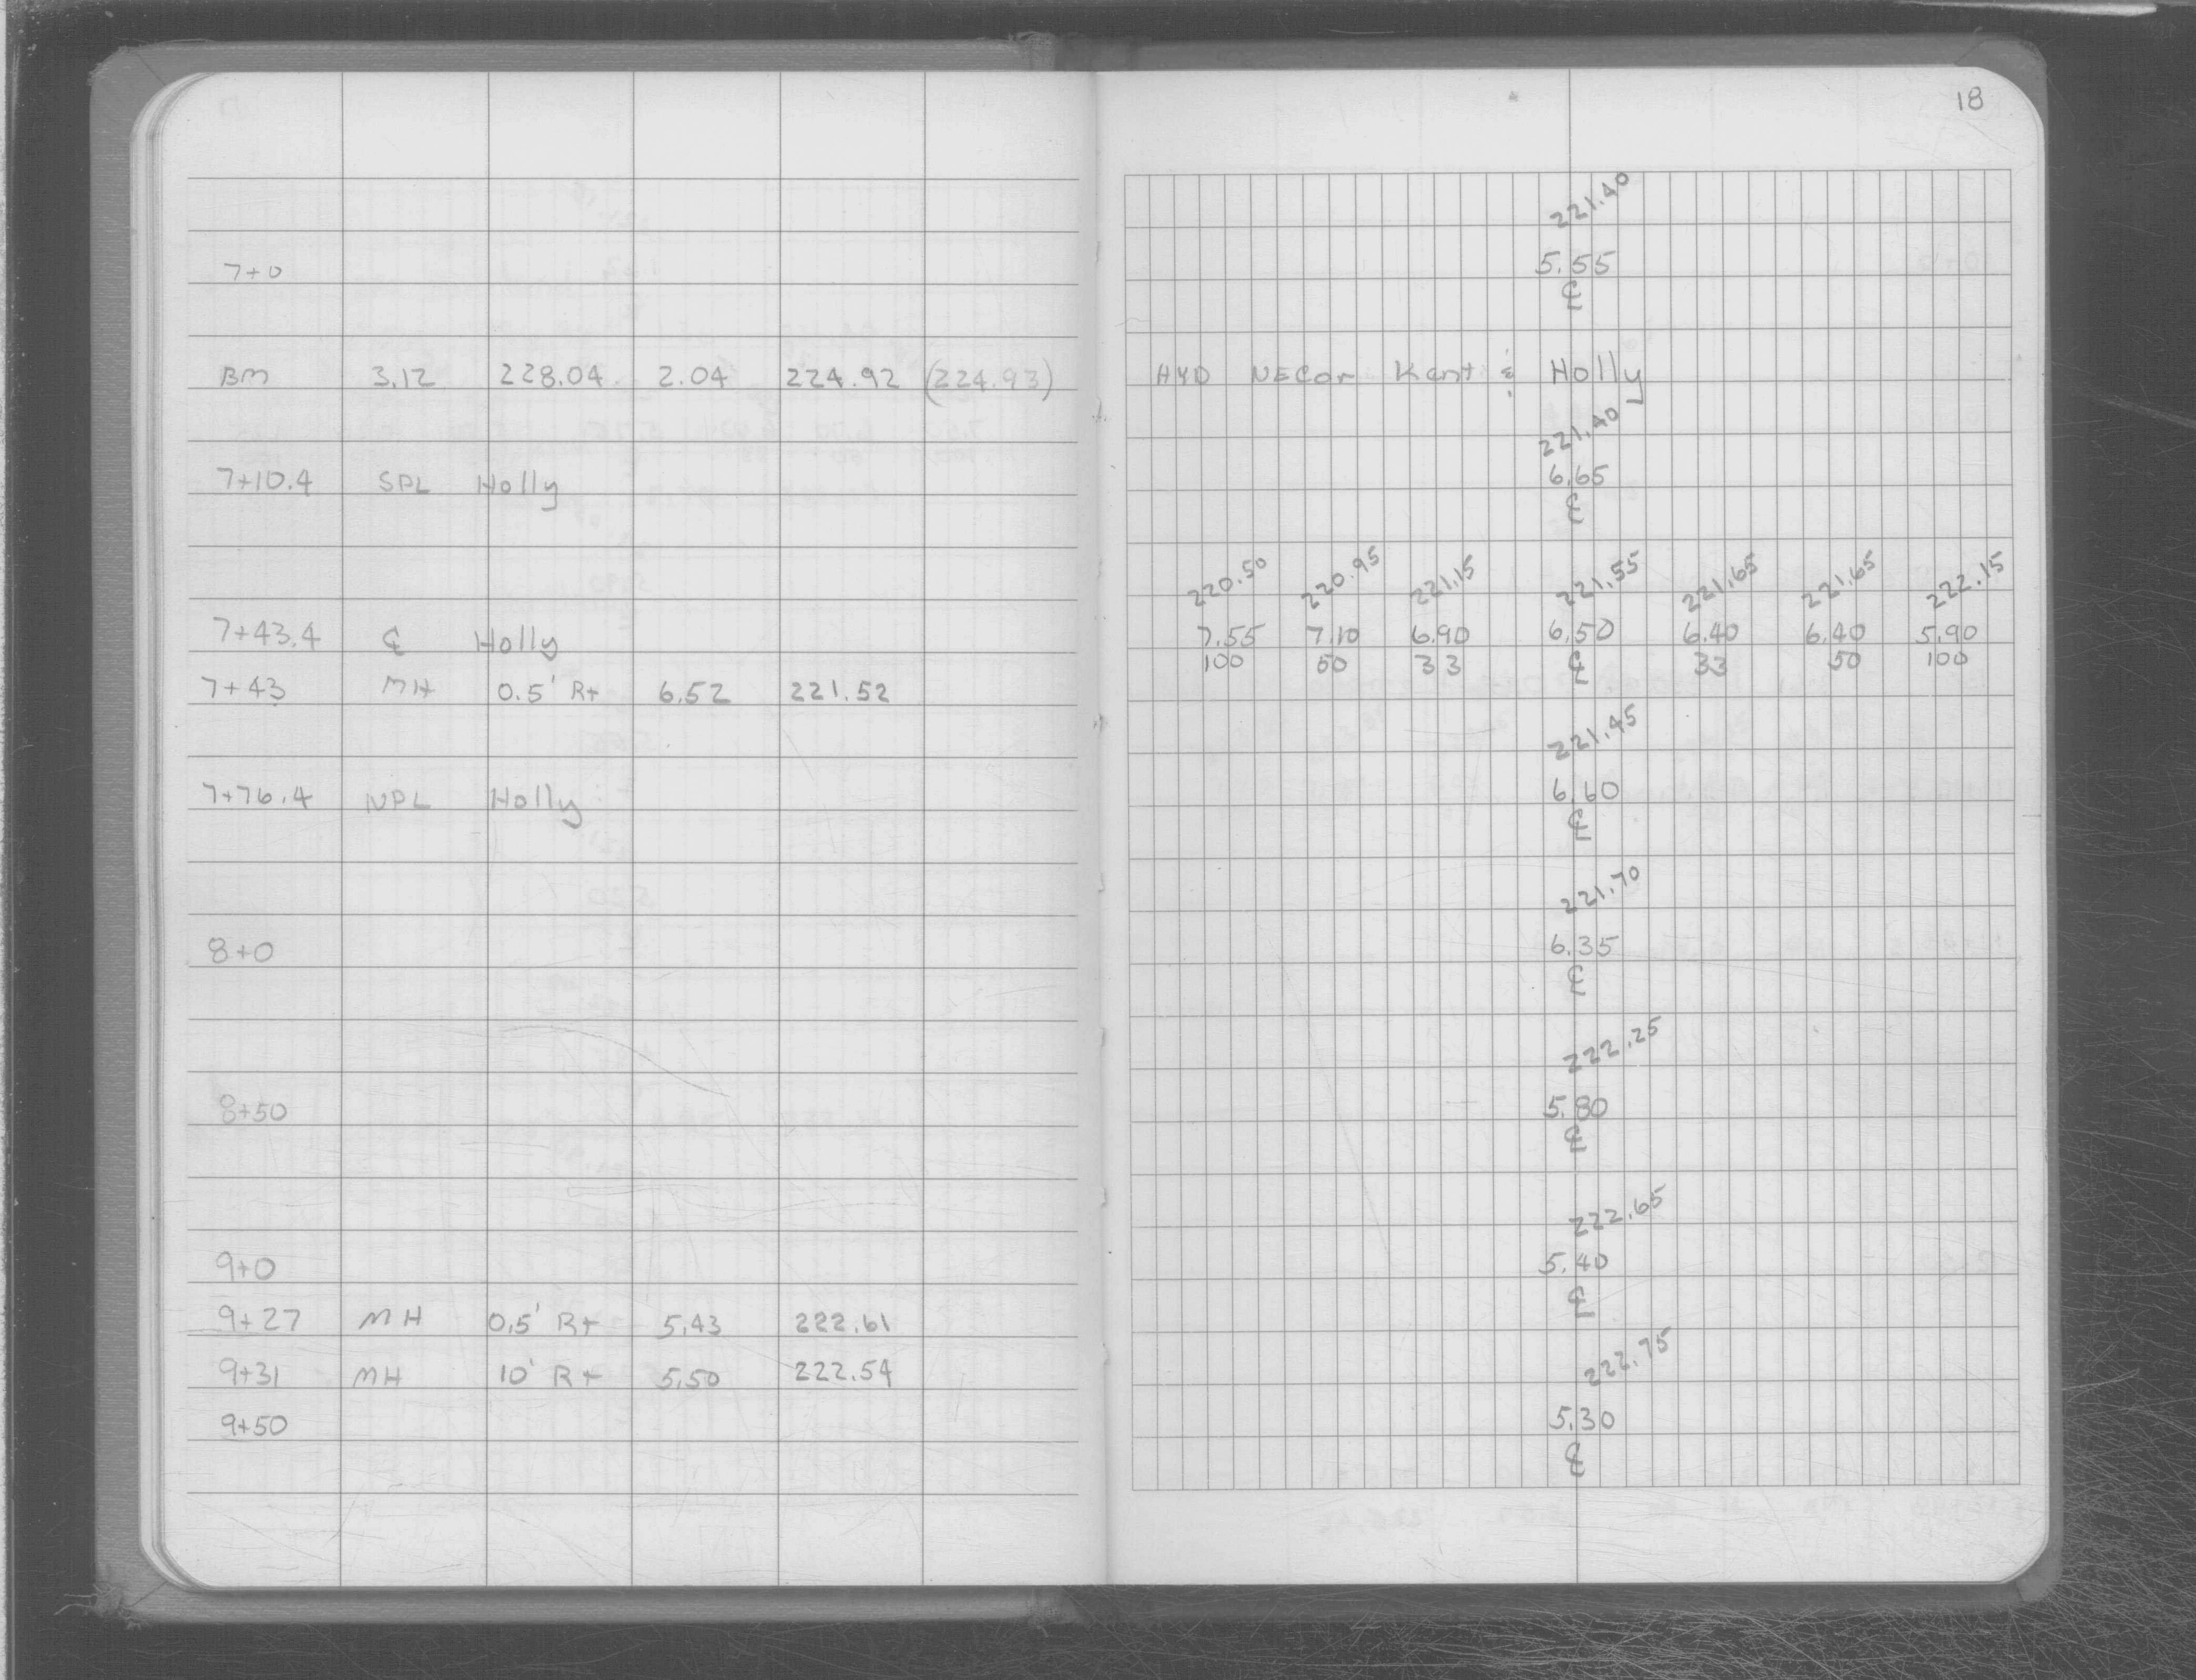 18
221.40
7+0 5.55
℄
BM 3.12 228.04 2.04 224.92 (224.93) HYD NECor Kent & Holly
221.40
7+10.4 SPL Holly 6.65
℄
220.50 220.95 221.15 221.55 221.65 221.65 222.15
7+43.4 ℄ Holly 7.55 7.10 6.90 6.50 6.40 6.40 5.90
100 50 33 ℄ 33 50 100
7+43 MH 0.5' Rt 6.52 221.52
221.45
7+76.4 NPL Holly 6.60
℄
221.70
8+0 6.35
℄
222.25
8+50 5.80
℄
222.65
9+0 5.40
℄
9+27 MH 0.5' Rt 5.43 222.61
9+31 MH 10' Rt 5.50 222.54
222.75
9+50 5.30
℄